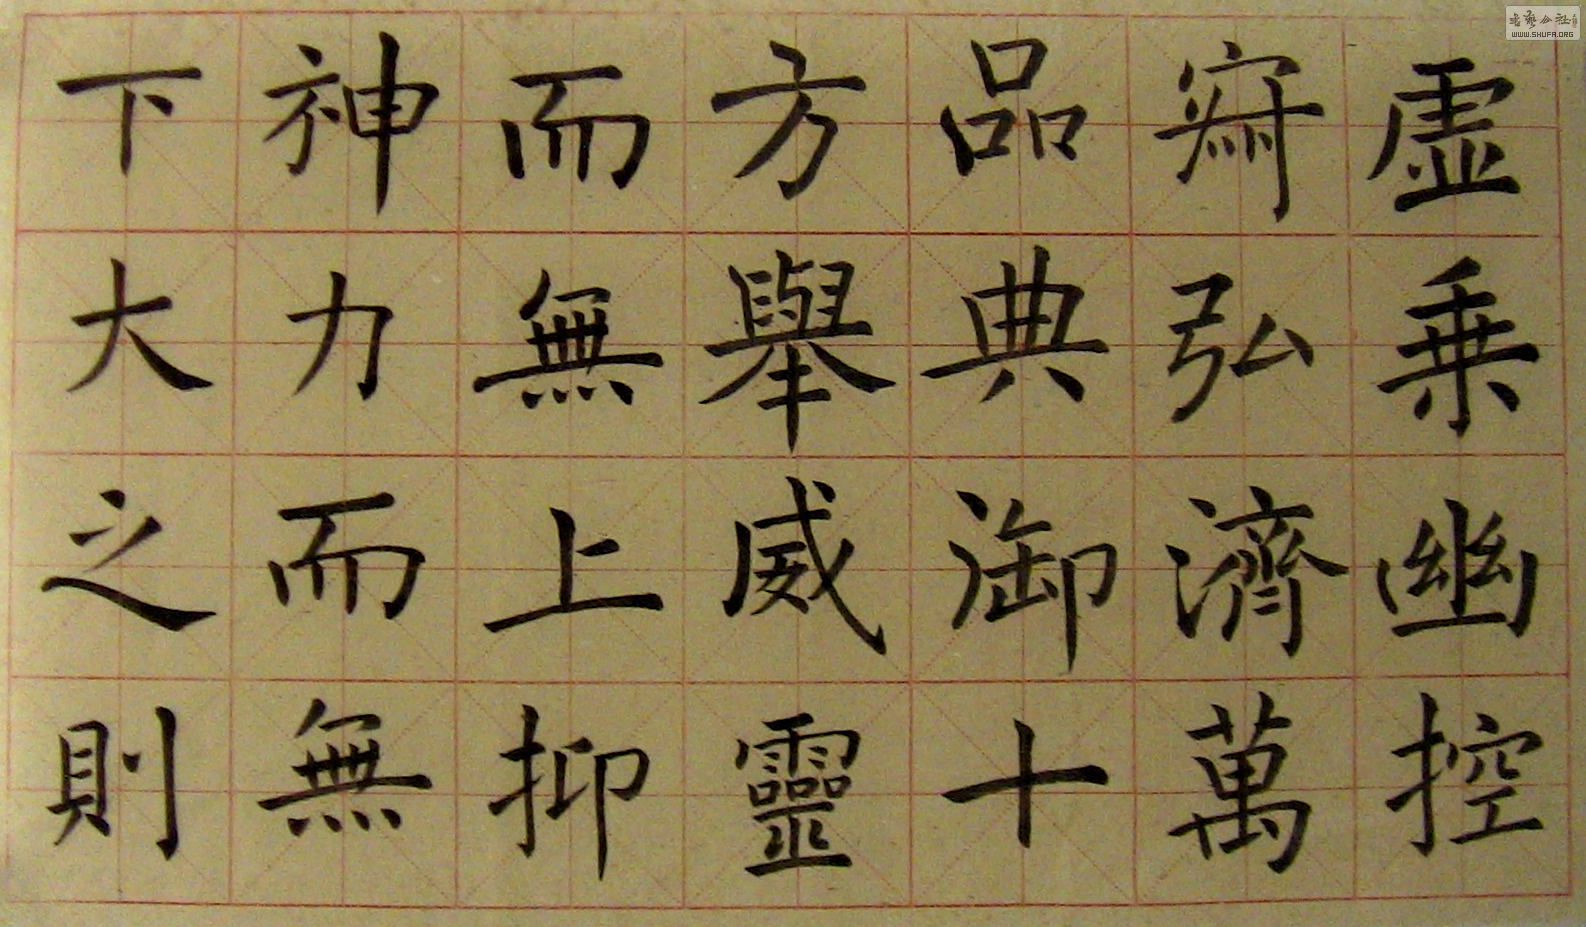 虛乘幽控
寂弘濟萬
品典御十
方舉威靈
而無上抑
神力而無
下大之則
WWW.SHUFA.ORG